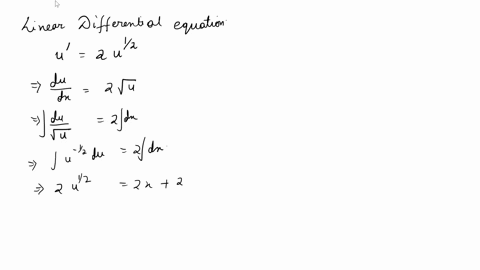 Linear Differential equation
u' = 2 u^{1/2}
⇒ du/dx = 2 √u
⇒ ∫ du/√u = 2∫dx
⇒ ∫ u^{-1/2} du = 2∫dx
⇒ 2 u^{1/2} = 2x + 2